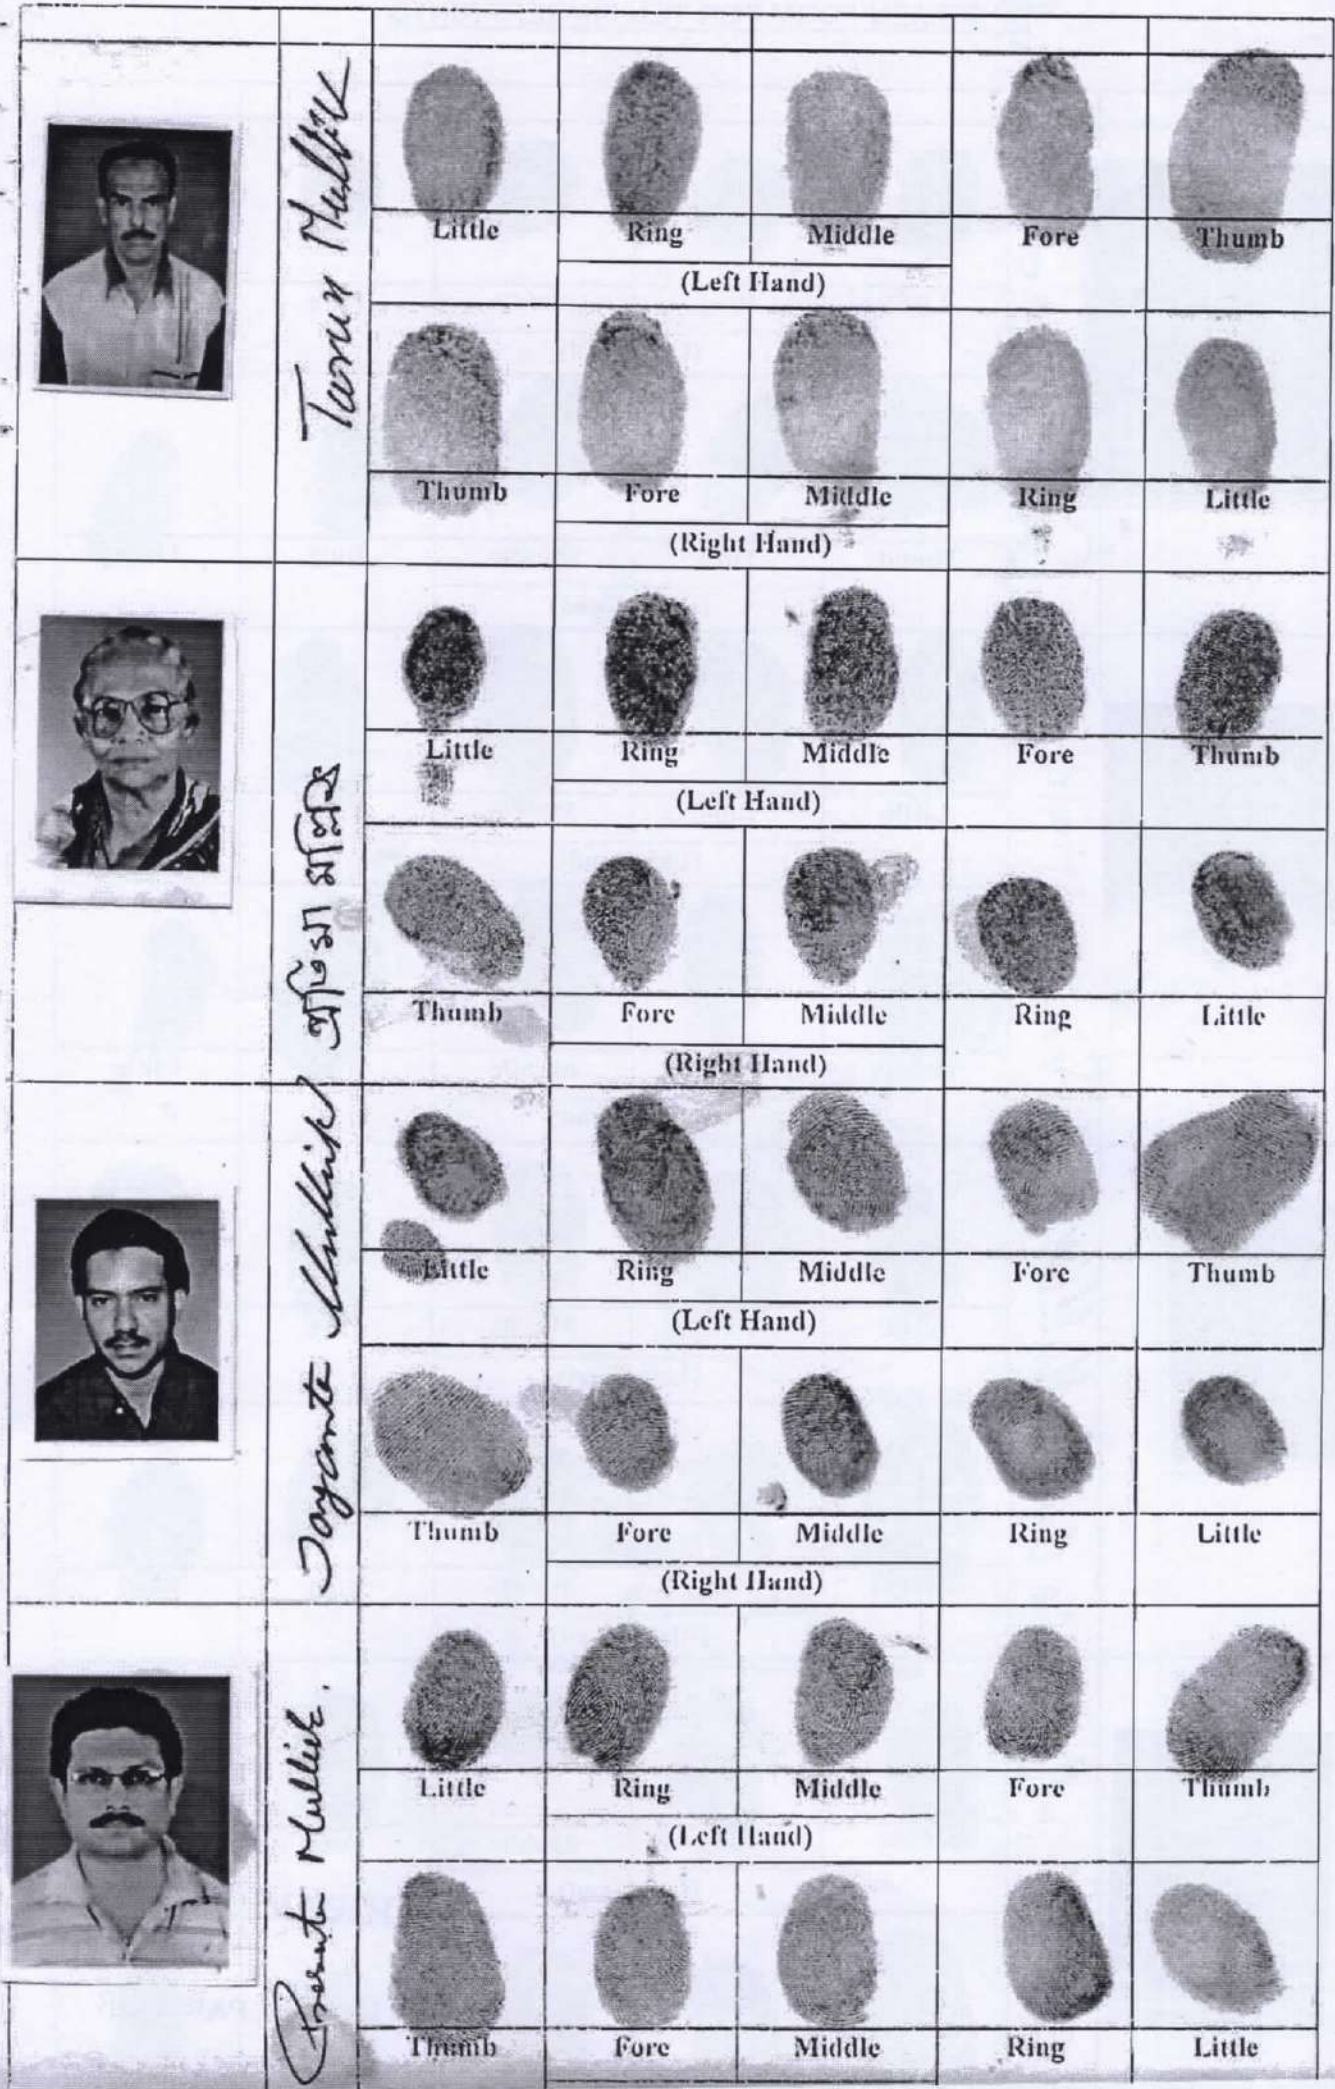 Tarun Mullick
Little Ring Middle Fore Thumb
(Left Hand)
Thumb Fore Middle Ring Little
(Right Hand)
প্রতিমা মল্লিক
Little Ring Middle Fore Thumb
(Left Hand)
Thumb Fore Middle Ring Little
(Right Hand)
Jayanta Mullick
Little Ring Middle Fore Thumb
(Left Hand)
Thumb Fore Middle Ring Little
(Right Hand)
Mullick.
Little Ring Middle Fore Thumb
(Left Hand)
Thumb Fore Middle Ring Little